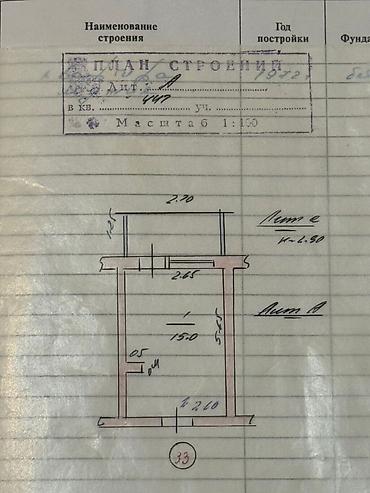 Наименование строения
Год постройки
Фунда
ПЛАН СТРОЕНИЙ
Лит. А
в кв. 447 уч.
Масштаб 1:100
2.70
1.25
Лит а
2.65
Лит А
1
15.0
5.65
05
н 2.60
33